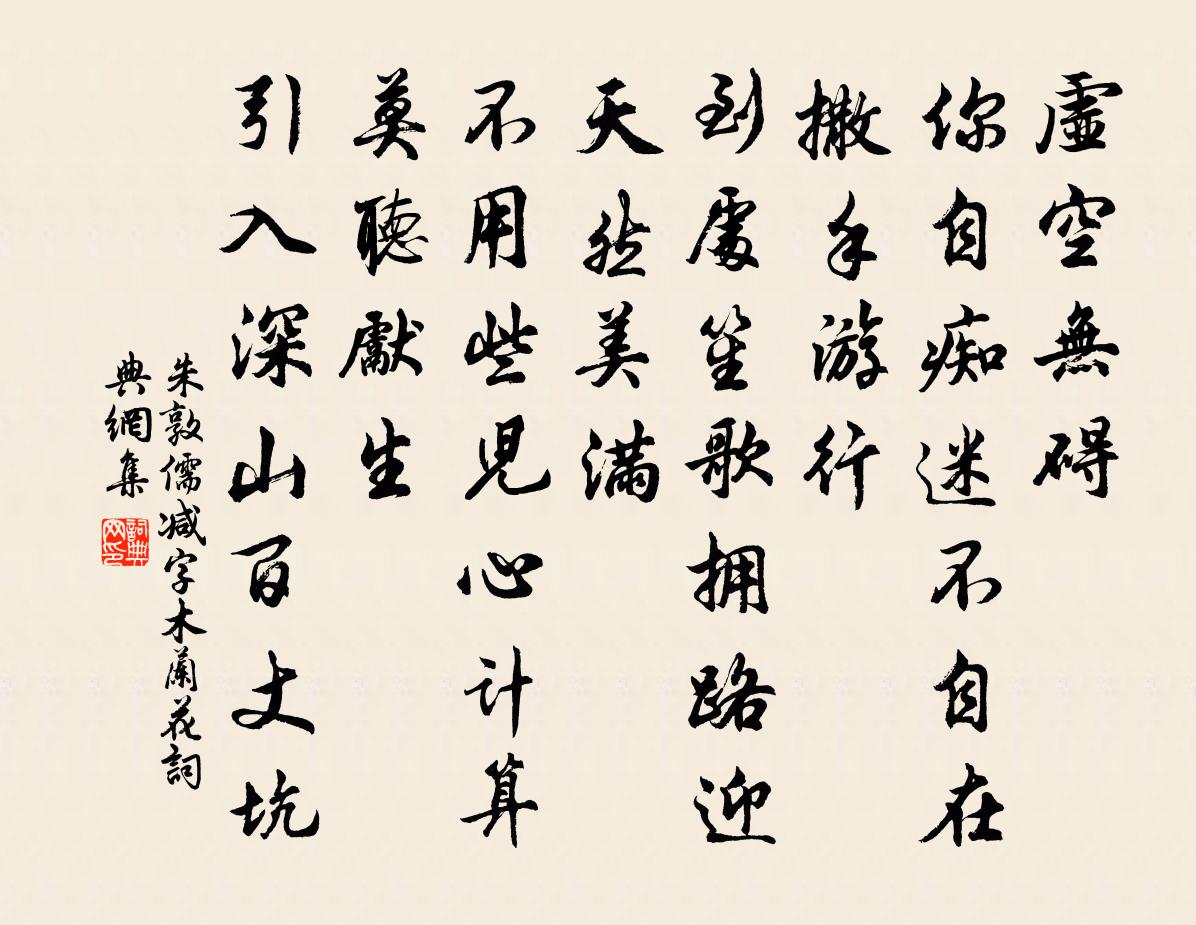 虛空無碍
你自痴迷不自在
撒手游行
到處笙歌拥路迎
天然美满
不用些児心计算
莫聽獻生
引入深山百丈坑
朱敦儒減字木蘭花詞
典網集
詞典网印